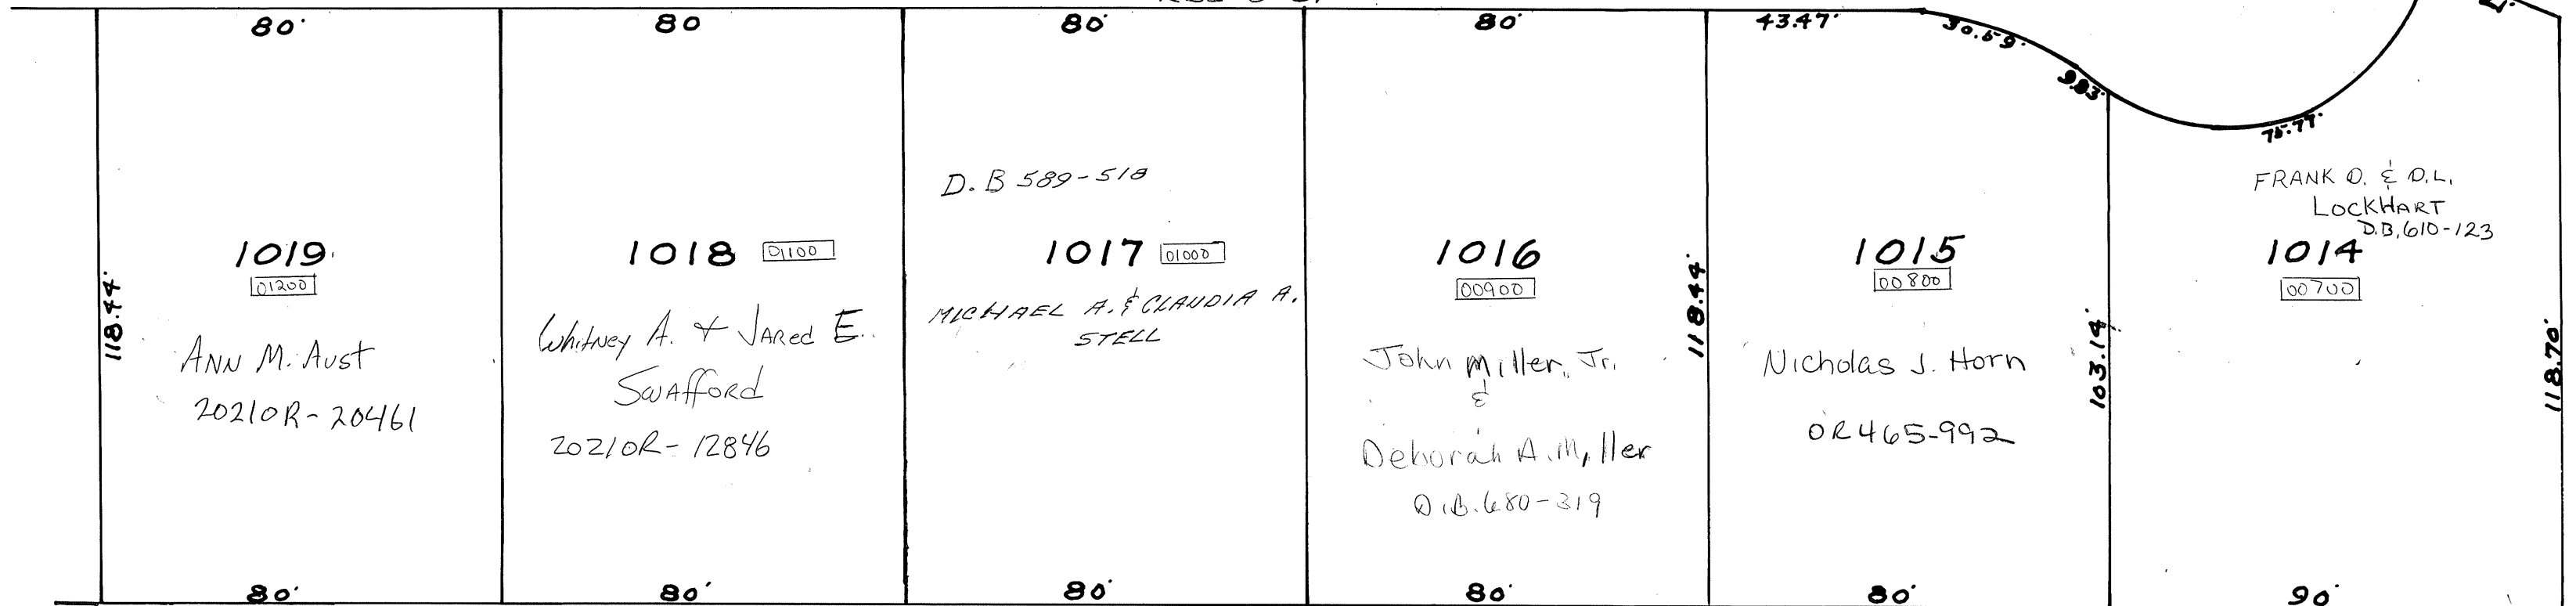 80'
80
80'
80'
43.47'
30.59'
9.83'
75.77'
118.44'
1019
01200
ANN M. AUST
2021OR-20461
80'
1018 01100
Whitney A. & JARED E.
SWAFFORD
2021OR-12846
80'
D.B 589-518
1017 01000
MICHAEL A. & CLAUDIA A.
STELL
80'
1016
00900
John Miller, Jr.
&
Deborah A. Miller
D.B. 680-319
80'
118.44'
1015
00800
Nicholas J. Horn
OR465-992
80'
103.14'
FRANK D. & D.L.
LOCKHART
D.B. 610-123
1014
00700
90'
118.70'